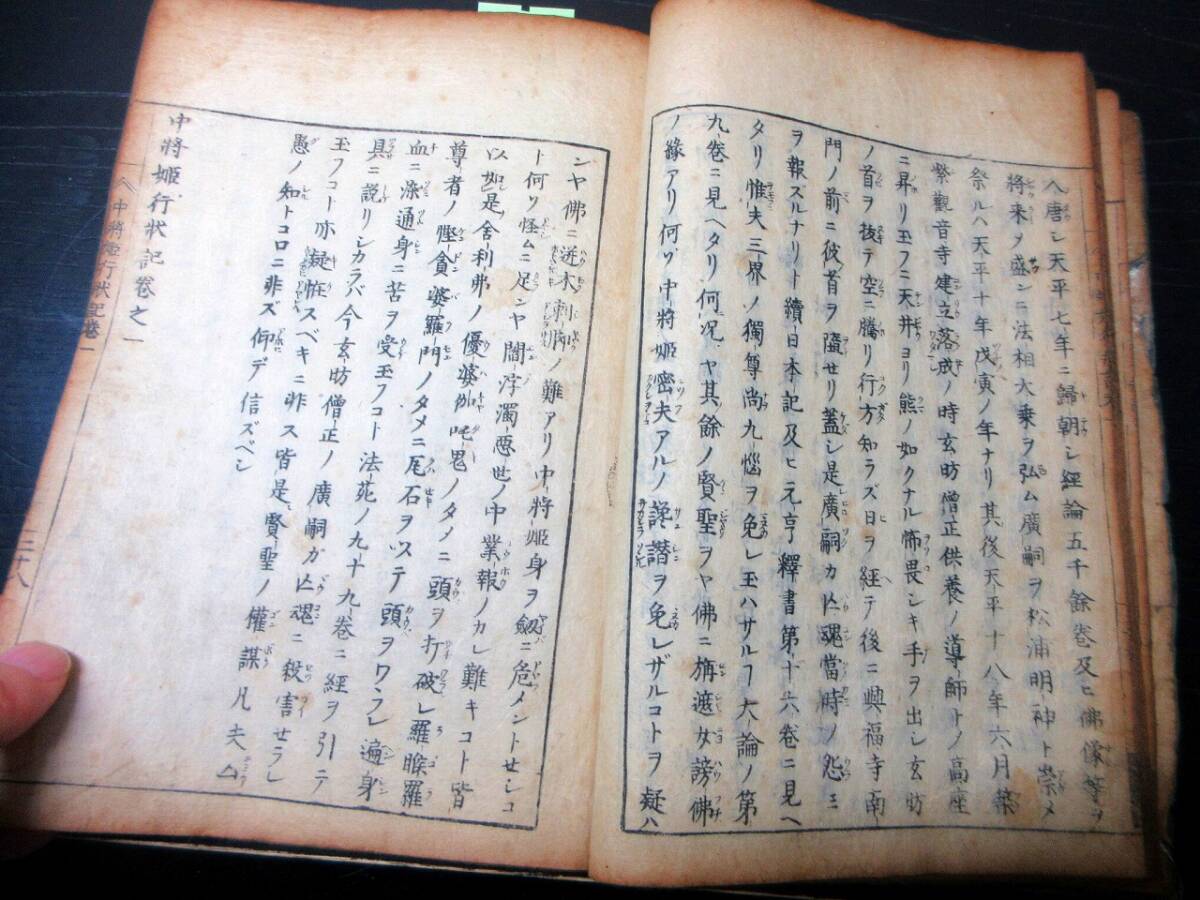 入唐シ天平七年ニ歸朝シ經論五千餘巻及ヒ佛像等ヲ
將来ヲ盛ンニ法相大乗ヲ弘ム廣嗣ヲ松浦明神ト崇メ
祭ルハ天平十年戊寅ノ年ナリ其後天平十八年六月築
紫觀音寺建立落成ノ時玄昉僧正供養ノ導師トノ高座
ニ昇リ玉フニ天井ヨリ熊ノ如クナル怖畏シキ手ヲ出シ玄昉
ノ首ヲ抜テ空ニ騰リ行方知ラズ日ヲ經テ後ニ興福寺南
門ノ前ニ彼首ヲ隕セリ蓋シ是廣嗣カ亡魂當時ノ怨ミ
ヲ報ズルナリト續日本記及ヒ元亨釋書第十六巻ニ見ヘ
タリ惟夫三界ノ獨尊尚九惱ヲ免レ玉ハサルフ大論ノ第
九巻ニ見ヘタリ何况ヤ其餘ノ賢聖ヲヤ佛ニ旃遮女謗佛
ノ縁アリ何ゾ中將姫密夫アルノ讒譖ヲ免レザルコトヲ疑ハ
ンヤ佛ニ迸木刺脚ノ難アリ中將姫身ヲ劔ニ危メントセシコ
ト何ソ怪ムニ足ンヤ閻浮濁惡世ノ中業報ノカレ難キコト皆
以如是舍利弗ノ優婆伽吒鬼ノタメニ頭ヲ打破レ羅睺羅
尊者ノ慳貪婆羅門ノタメニ瓦石ヲステ頭ヲワラレ遍身
血ニ涤通身ニ苦ヲ受玉フコト法苑ノ九十九巻ニ經ヲ引テ
具ニ説リシカラバ今玄昉僧正ノ廣嗣カ亡魂ニ殺害セラレ
玉フコト亦疑恠スベキニ非ス皆是賢聖ノ權謀凡夫ム
愚ノ知トコロニ非ズ仰デ信ズベシ
中將姫行状記巻之一
中將姫行状記巻一
三十八